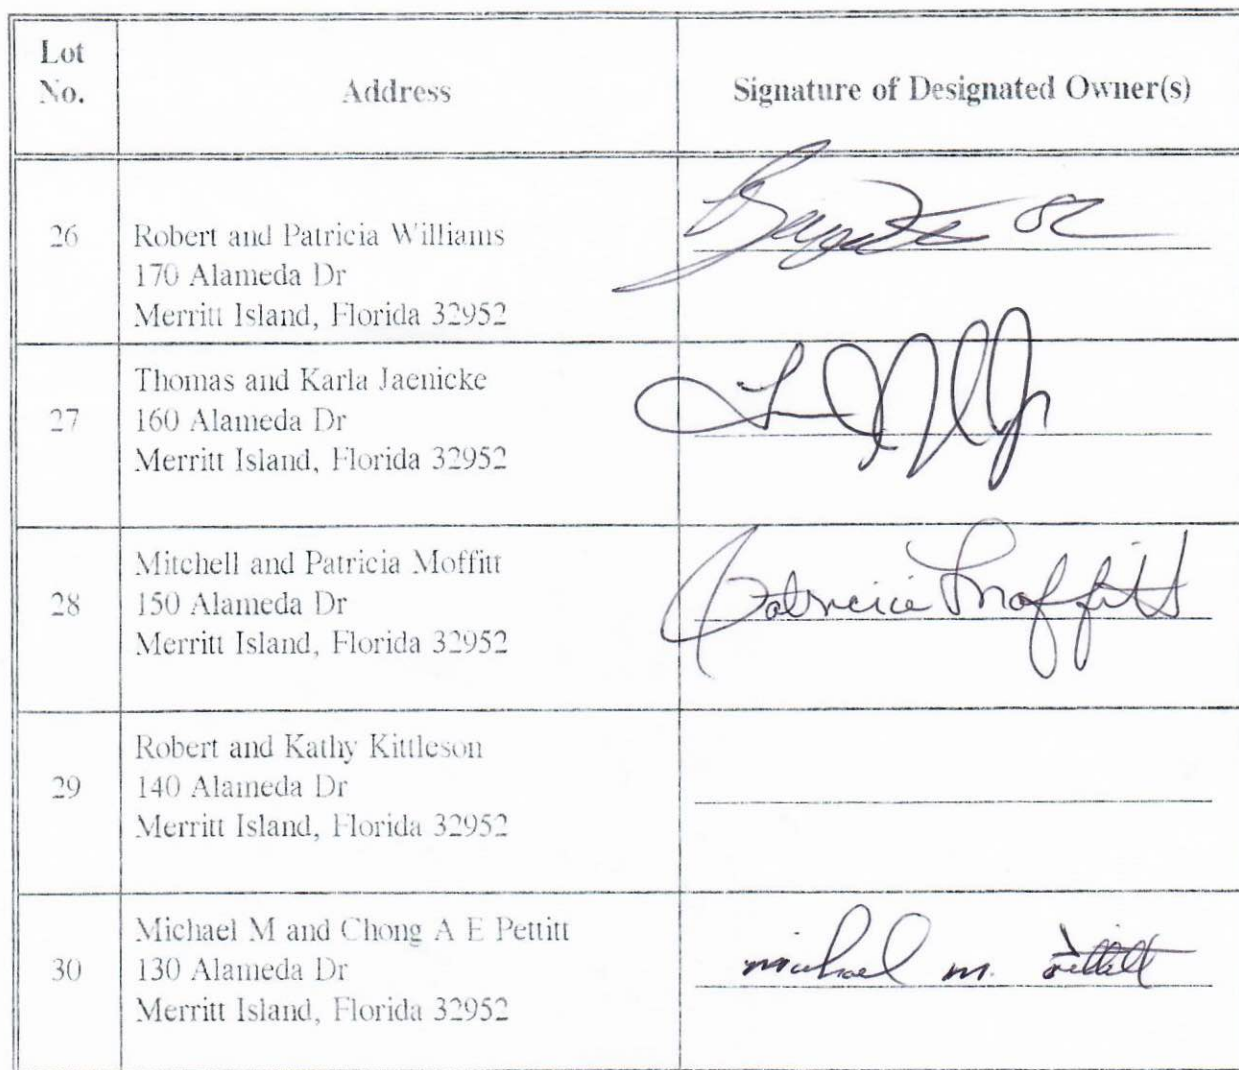 Lot No.
Address
Signature of Designated Owner(s)
26
Robert and Patricia Williams
170 Alameda Dr
Merritt Island, Florida 32952
27
Thomas and Karla Jaenicke
160 Alameda Dr
Merritt Island, Florida 32952
28
Mitchell and Patricia Moffitt
150 Alameda Dr
Merritt Island, Florida 32952
Patricia Moffitt
29
Robert and Kathy Kittleson
140 Alameda Dr
Merritt Island, Florida 32952
30
Michael M and Chong A E Pettitt
130 Alameda Dr
Merritt Island, Florida 32952
michael m. Pettitt